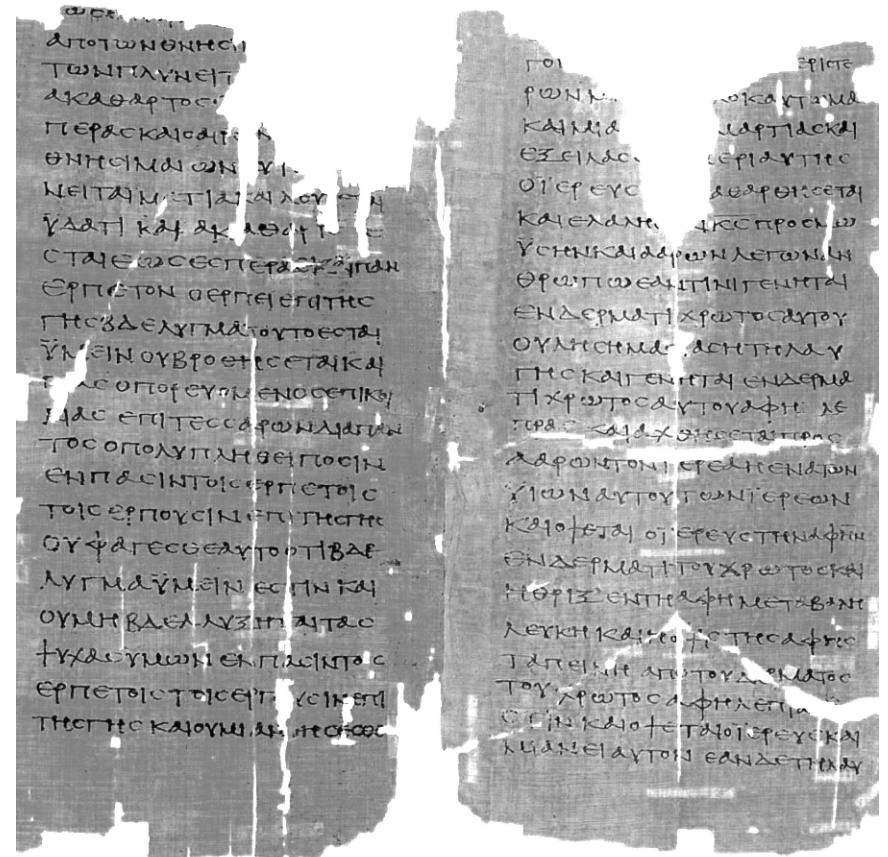 ΑΠΟΤΩΝΘΝΗΣΙ
ΤΩΝΠΛΥΝΕΙΤ
ΑΚΑΘΑΡΤΟΣ
ΠΕΡΑΣΚΑΙΟΑΙΡΩΝ
ΘΝΗΣΙΜΑΙΩΝ
ΝΕΙΤΑΙ ΚΑΙ ΛΟΥ
ΫΔΑΤΙ ΚΑΙ ΑΚΑΘΑΡΤΟΣ
ΣΤΑΙΕΩΣΕΣΠΕΡΑΣΚΑΙΠΑΝ
ΕΡΠΕΤΟΝ ΟΕΡΠΕΙΕΠΙΤΗΣ
ΓΗΣΒΔΕΛΥΓΜΑΤΟΥΤΟΕΣΤΑΙ
ΫΜΕΙΝΟΥΒΡΩΘΗΣΕΤΑΙΚΑΙ
ΟΠΟΡΕΥΟΜΕΝΟΣΕΠΙΚΟΙ
ΛΙΑΣ ΕΠΙΤΕΣΣΑΡΩΝΔΙΑΠΑΝ
ΤΟΣ ΟΠΟΛΥΠΛΗΘΕΙΠΟΣΙΝ
ΕΝΠΑΣΙΝΤΟΙΣΕΡΠΕΤΟΙΣ
ΤΟΙΣΕΡΠΟΥΣΙΝΕΠΙΤΗΣΓΗΣ
ΟΥΦΑΓΕΣΘΕΑΥΤΟΟΤΙΒΔΕ
ΛΥΓΜΑΫΜΕΙΝ ΕΣΤΙΝ ΚΑΙ
ΟΥΜΗ ΒΔΕΛΥΞΗΤΑΙΤΑΣ
ΨΥΧΑΣΥΜΩΝ ΕΝΠΑΣΙΝΤΟΙΣ
ΕΡΠΕΤΟΙΣΤΟΙΣΕΡΠΟΥΣΙΝΕΠΙ
ΤΗΣΓΗΣ ΚΑΙΟΥΜΙΑΝΘΗΣΕΣΘΕ
ΕΡΙΣΤΕ
ΡΩΝ ΟΚΑΥΤΩΜΑ
ΚΑΙΜΙΑ ΜΑΡΤΙΑΣΚΑΙ
ΕΞΕΙΛΑΣ ΠΕΡΙΑΥΤΗΣ
ΟΪΕΡΕΥΣ ΚΑΘΑΡΘΗΣΕΤΑΙ
ΚΑΙΕΛΑΛΗ ΚΣΠΡΟΣΜΩ
ΫΣΗΝΚΑΙΑΑΡΩΝΛΕΓΩΝΑΝ
ΘΡΩΠΩΕΑΝΤΙΝΙΓΕΝΗΤΑΙ
ΕΝΔΕΡΜΑΤΙΧΡΩΤΟΣΑΥΤΟΥ
ΟΥΛΗΣΗΜΑΣΙΑΣΗΤΗΛΑΥ
ΓΗΣΚΑΙΓΕΝΗΤΑΙ ΕΝΔΕΡΜΑ
ΤΙΧΡΩΤΟΣΑΥΤΟΥΑΦΗ ΛΕ
ΠΡΑΣ ΚΑΙΑΧΘΗΣΕΤΑΙΠΡΟΣ
ΑΑΡΩΝΤΟΝΙΕΡΕΑΗΕΝΑΤΩΝ
ΫΙΩΝΑΥΤΟΥΤΩΝΪΕΡΕΩΝ
ΚΑΙΟΨΕΤΑΙ ΟΪΕΡΕΥΣΤΗΝΑΦΗΝ
ΕΝΔΕΡΜΑΤΙΤΟΥΧΡΩΤΟΣΚΑΙ
ΗΘΡΙΞΕΝΤΗΑΦΗΜΕΤΑΒΑΛΗ
ΛΕΥΚΗΚΑΙΗΟΨΙΣΤΗΣΑΦΗΣ
ΤΑΠΕΙΝΗ ΑΠΟΤΟΥΔΕΡΜΑΤΟΣ
ΤΟΥ ΧΡΩΤΟΣΑΦΗΛΕΠΡΑΣ
ΕΣΤΙΝ ΚΑΙΟΨΕΤΑΙΟΪΕΡΕΥΣΚΑΙ
ΜΙΑΝΕΙΑΥΤΟΝ ΕΑΝΔΕΤΗΛΑΥ